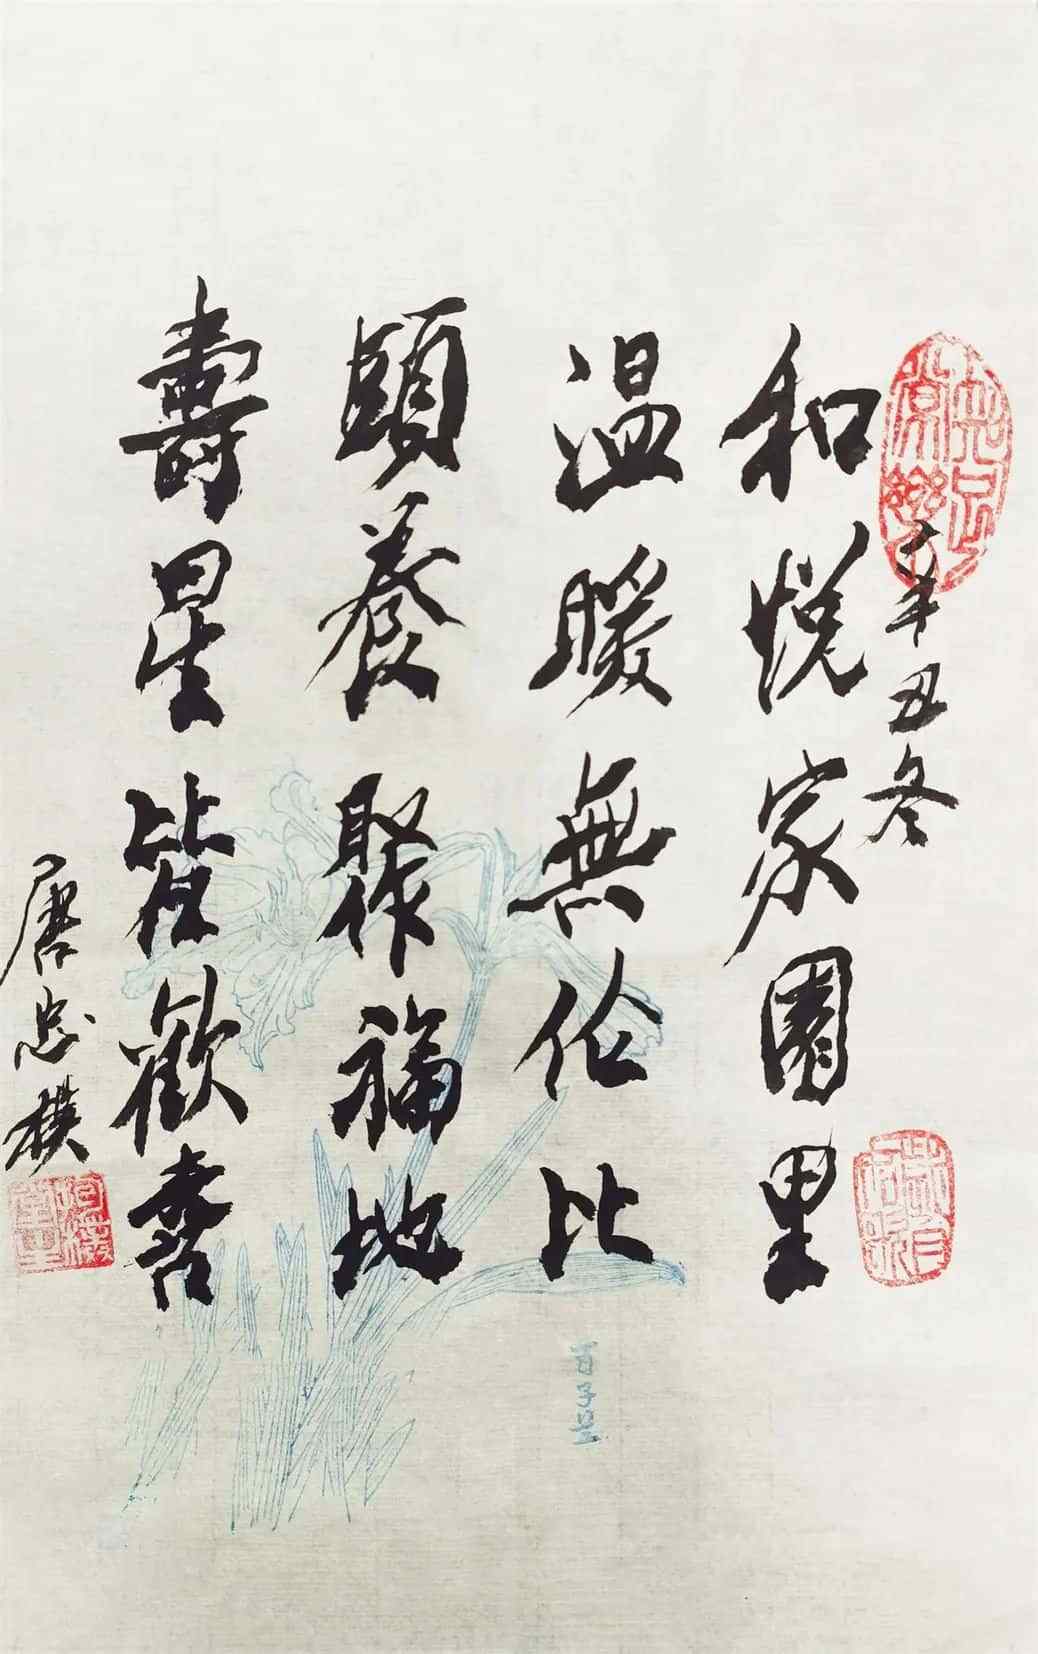 辛丑冬
和悦家園里
温暖無伦比
頤養聚福地
壽星皆歡喜
唐忠樸